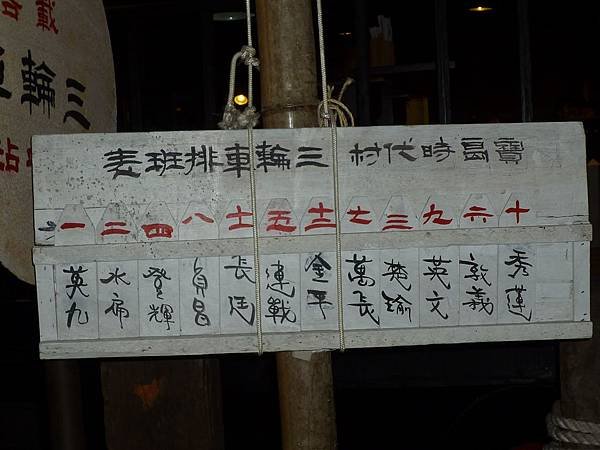 寶島時代村 三輪車排班表
十 六 九 三 七 十二 五 十一 八 四 二 一
秀蓮
敦義
英文
楚瑜
萬長
金平
連戰
長廷
貞昌
登輝
水扁
英九
載
三輪
站